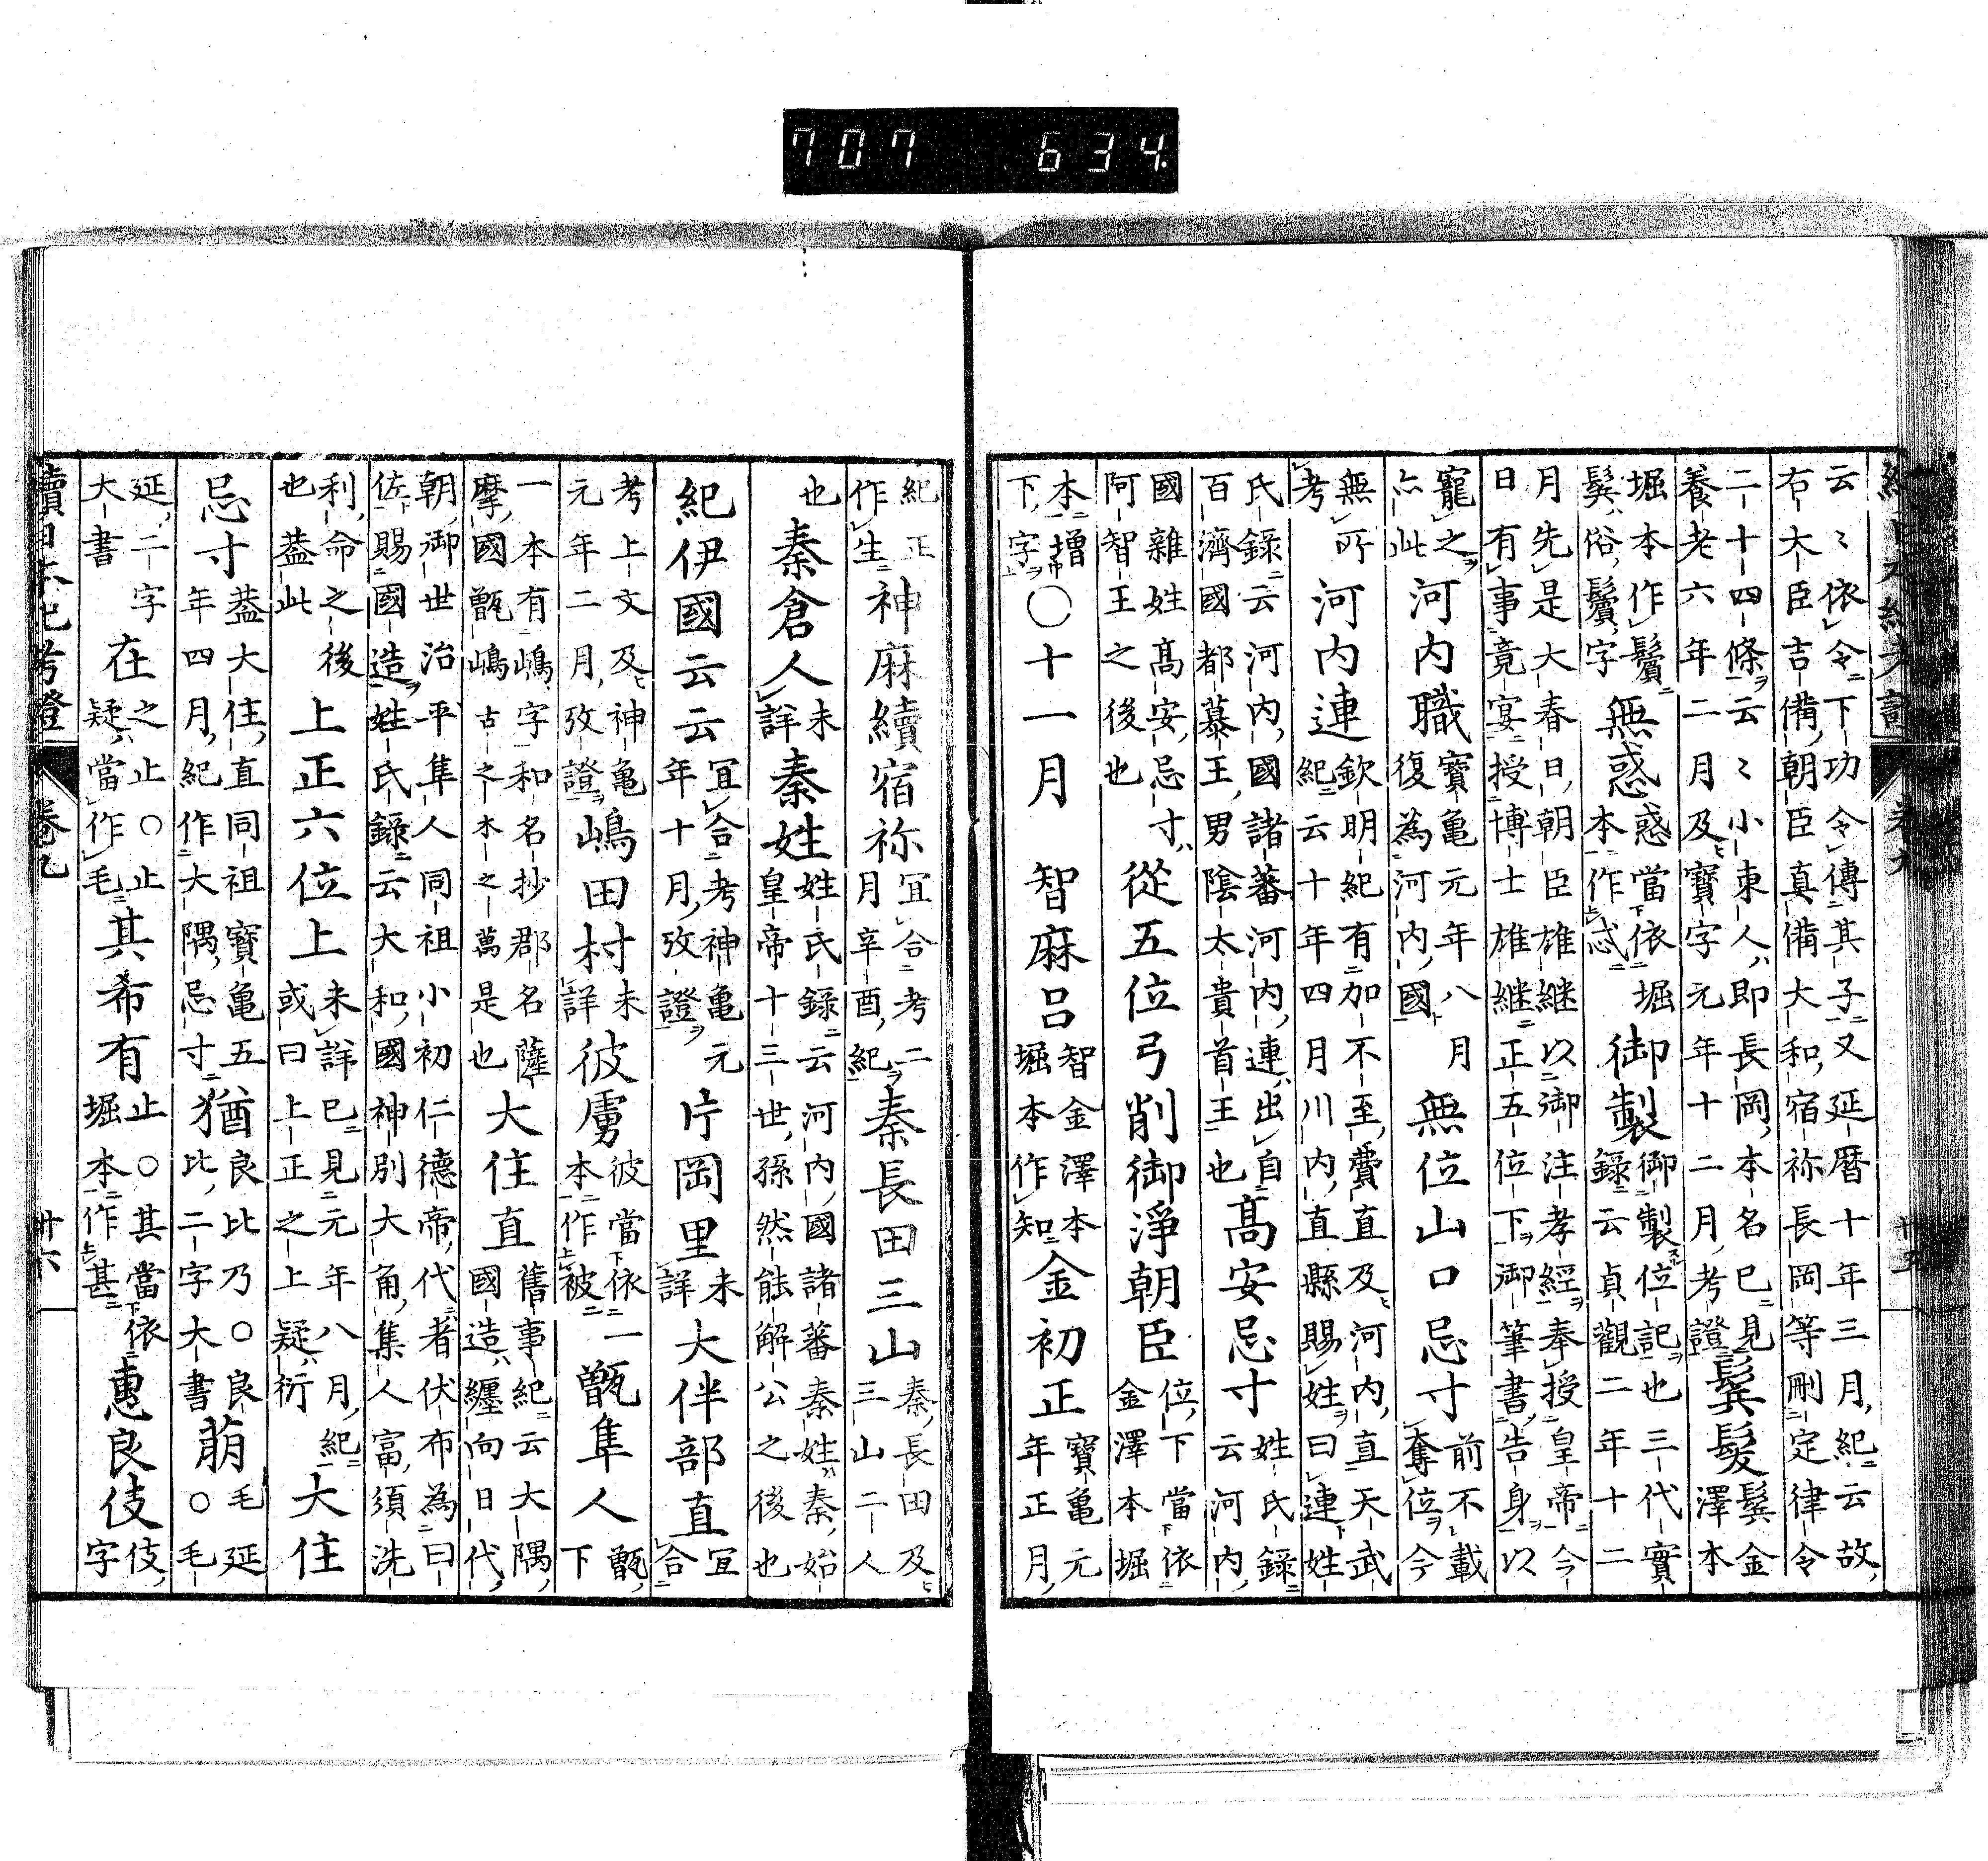 707 634
云〻依令下功令傳其子又延曆十年三月紀云故
右大臣吉備朝臣真備大和宿祢長岡等刪定律令
二十四條云〻小東人即長岡本名已見
養老六年二月及寶字元年十二月考證
鬂髮
鬂金
澤本
堀本作鬢
鬂俗鬢字
無惑
惑當依堀
本作惑
御製
御製位記也三代實
錄云貞觀二年十二
月先是大春日朝臣雄継以御注孝經奉授皇帝今
日有事竟宴授博士雄継正五位下御筆書告身以
寵之
亦此
河内職
寶亀元年八月
復為河内國
無位山口忌寸
前不載
奪位今
無所
考
河内連
欽明紀有加不至費直及河内直天武
紀云十年四月川内直縣賜姓曰連姓
氏錄云河内國諸蕃河内連出自
百濟國都慕王男陰太貴首王也
高安忌寸
姓氏錄
云河内
國雜姓高安忌寸
阿智王之後也
從五位弓削御淨朝臣
位下當依
金澤本堀
本增
下字
○十一月
智麻呂
智金澤本
堀本作知
金初正
寶亀元
年正月
紀正
作生
神麻續宿祢
冝合考二
月辛酉紀
秦長田三山
秦長田及
三山二人
也
秦倉人
未
詳
秦姓
姓氏錄云河内國諸蕃秦姓秦始
皇帝十三世孫然能解公之後也
紀伊國云云
冝合考神亀元
年十月攷證
片岡里
未
詳
大伴部直
冝
合
考上文及神亀
元年二月攷證
嶋田村
未
詳
彼虜
彼當依
本作被
一甑隼人
甑下
一本有嶋字和名抄郡名薩
摩國甑嶋古之木之萬是也
大住直
舊事紀云大隅
國造纏向日代
朝御世治平隼人同祖初小仁德帝代者伏布為曰
佐賜國造姓氏錄云大和國神別大角集人富須洗
利命之後
也葢此
上正六位上
未詳已見元年八月紀
或曰上正之上疑衍
大住
忌寸
葢大住直同祖寶亀五
年四月紀作大隅忌寸
猶
良比乃○良
比二字大書
萠
毛延
○毛
延二字
大書
在
之止○止
疑當作毛
其希有
止○其當依
堀本作甚
惠良伎
伎
字
續日本紀考證
卷九
卅六